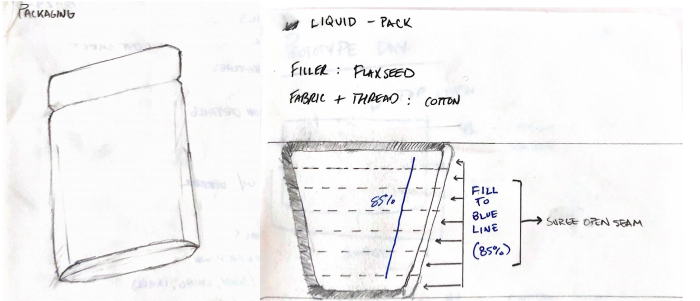 PACKAGING
LIQUID - PACK
FILLER : FLAXSEED
FABRIC + THREAD : COTTON
85%
FILL
TO
BLUE
LINE
(85%)
SURGE OPEN SEAM